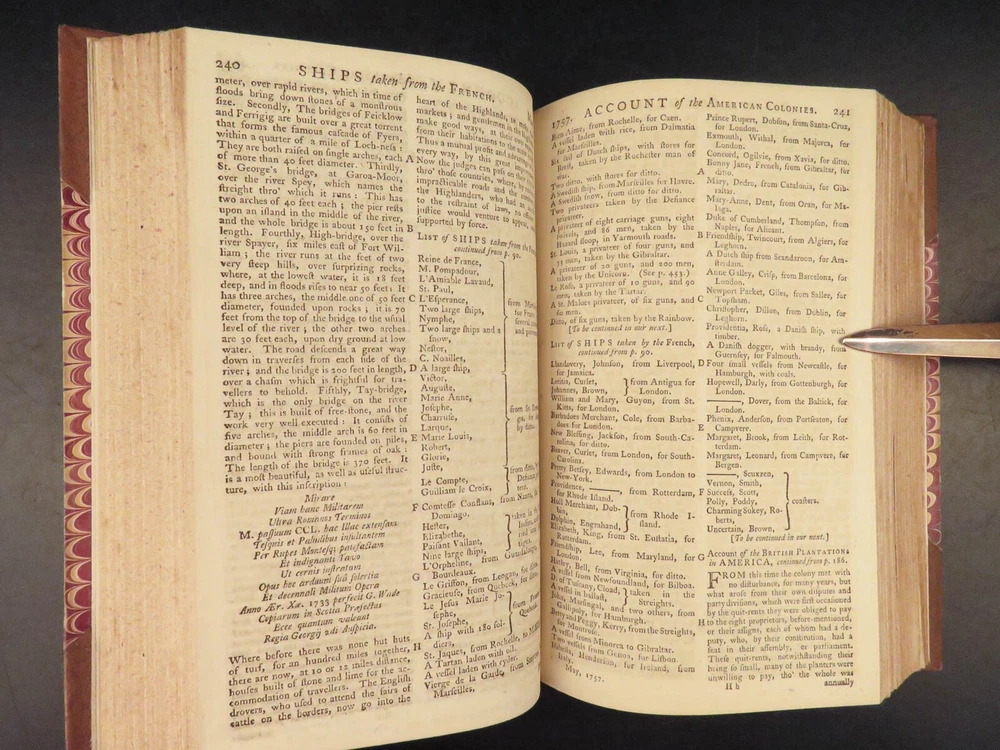 240
SHIPS taken from the FRENCH.
meter, over rapid rivers, which in time of
floods bring down stones of a monstrous
size. Secondly, The bridges of Feicklow
and Ferrigig are built over a great torrent
that forms the famous cascade of Fyers,
within a quarter of a mile of Loch-ness:
They are both raised on single arches, each
of more than 40 feet diameter. Thirdly,
St. George's bridge, at Garoa-Moor,
over the river Spey, which names the
streight thro' which it runs: This has
two arches of 40 feet each; the pier rests
upon an island in the middle of the river,
and the whole bridge is about 150 feet in
length. Fourthly, High-bridge, over the
river Spayer, six miles east of Fort Wil-
liam; the river runs at the feet of two
very steep hills, over surprizing rocks,
where, at the lowest water, it is 18 feet
deep, and in floods rises to near 50 feet: It
has three arches, the middle one of 50 feet
diameter, founded upon rocks; it is 70
feet from the top of the bridge to the usual
level of the river; the other two arches
are 30 feet each, upon dry ground at low
water. The road descends a great way
down in traverses from each side of the
river; and the bridge is 200 feet in length,
over a chasm which is frightful for tra-
vellers to behold. Fifthly, Tay-bridge,
which is the only bridge on the river
Tay; this is built of free-stone, and the
work very well executed: It consists of
five arches, the middle arch is 60 feet in
diameter; the piers are founded on piles,
and bound with strong frames of oak:
The length of the bridge is 370 feet. It
is a most beautiful, as well as useful struc-
ture, with this inscription:
Mirare
Viam hanc Militarem
Ultra Romanos Terminos
M. passuum CCL. hac illac extensam
Tesquis et Paludibus insultantem
Per Rupes Montesq; patefactam
Et indignanti Tavo
Ut cernis instratum
Opus hoc arduum suâ solertia
Et decennali Militum Opera
Anno Ær. Xæ. 1733 perfecit G. Wade
Copiarum in Scotia Præfectus
Ecce quantum valeant
Regia Georgij 2di Auspicia.
Where before there was none but huts
of turf, for an hundred miles together,
there are now, at 10 or 12 miles distance,
houses built of stone and lime for the ac-
commodation of travellers. The English
drovers, who used to attend the fairs of
cattle on the borders, now go into the
heart of the Highlands, to
markets; and gentlemen in the
make good ways, as they
from their habitations to the
Thus a mutual profit and
every way, by this great
A Now the judges can pass on their
thro' those countries, where, by
impracticable roads and the
the Highlanders, who had
to the restraint of laws, no
justice would venture to appear,
B supported by force.
LIST of SHIPS taken from the
continued from p. 90.
Reine de France,
M. Pompadour,
L'Aimiable Lavaud,
St. Paul,
C L'Esperance,
Two large ships,
Nymphe,
Two large ships and a
snow,
Nestor,
C. Noailles,
D A large ship,
Victor,
Auguste,
Marie Anne,
Josephe,
Charruse,
Larque,
E Marie Louis,
Robert,
Glorie,
Juste,
Le Compte,
Guilliam le Croix,
F Comtesse Constans, from Nantz,
Domingo.
Hester,
Elizabethe,
Paissant Vaillant,
Nine large ships,
L'Orpheline, from Guadalupe,
G Bourdeaux.
Le Griffon, from Leogan, for ditto.
Gracieuse, from Quebeck, for ditto.
Le Jesus Marie Jo-
sephe,
St. Josephe,
A ship with 180 sol-
H diers,
St. Jaques, from Rochelle, to
A Tartan laden with oil.
A vessel laden with cyder.
Vierge de la Garde, from
Marseilles,
1757.
ACCOUNT of the AMERICAN COLONIES.
241
Bien-Aime, from Rochelle, for Caen.
A vessel laden with rice, from Dalmatia
for Marseilles.
Six sail of Dutch ships, with stores for
Brest, taken by the Rochester man of
war.
Two ditto, with stores for ditto.
A Swedish ship, from Marseilles for Havre.
A Swedish snow, from ditto for ditto.
Two privateers taken by the Defiance
privateer.
A privateer of eight carriage guns, eight
swivels, and 86 men, taken by the
Hazard sloop, in Yarmouth roads.
St. Louis, a privateer of four guns, and
75 men, taken by the Gibraltar.
A privateer of 20 guns, and 200 men,
taken by the Unicorn. (See p. 453.)
Le Roß, a privateer of 10 guns, and 90
men, taken by the Tartar.
A St. Maloes privateer, of six guns, and
60 men.
Ditto, of six guns, taken by the Rainbow.
[To be continued in our next.]
LIST of SHIPS taken by the French,
continued from p. 90.
Llandavery, Johnson, from Liverpool,
for Jamaica.
Curlet, } from Antigua for
Johannes, Brown, } London.
William and Mary, Guyon, from St.
Kitts, for London.
Barbadoes Merchant, Cole, from Barba-
does for London.
New Blessing, Jackson, from South-Ca-
rolina, for ditto.
Beaver, Curlet, from London for South-
Carolina.
Pretty Betsey, Edwards, from London to
New-York.
Providence, ———, from Rotterdam,
for Rhode Island.
Hull Merchant, Dob-
bin, } from Rhode I-
Dolphin, Engrahand, } sland.
Elizabeth, King, from St. Eustatia, for
Rotterdam.
Friendship, Lee, from Maryland, for
London.
Hatley, Bell, from Virginia, for ditto.
A vessel from Newfoundland, for Bilboa.
D. of Tuscany, Cload, } taken in the
A vessel in ballast, } Streights.
John, Masongal, and two others, from
Gallipoly, for Hamburgh.
Betty and Peggy, Kerry, from the Streights,
for Montrose.
A vessel from Minorca to Gibraltar.
Two vessels from Genoa, for Lisbon.
Henderson, for Ireland, from
Italy.
May, 1757.
Prince Rupert, Dobson, from Santa-Cruz,
for London.
Exmouth, Withal, from Majorca, for
London.
Concord, Ogilvie, from Xavia, for ditto.
Bonny Jane, French, from Gibraltar, for
A ditto.
Mary, Dedro, from Catalonia, for Gib-
raltar.
Mary-Anne, Dent, from Oran, for Ma-
laga.
Duke of Cumberland, Thompson, from
Naples, for Alicant.
B Friendship, Twincourt, from Algiers, for
Leghorn.
A Dutch ship from Scandaroon, for Am-
sterdam.
Anne Galley, Crisp, from Barcelona, for
London.
Newport Packet, Giles, from Sallee, for
C Topsham.
Christopher, Dillon, from Dublin, for
Leghorn.
Providentia, Ross, a Danish ship, with
timber.
A Danish dogger, with brandy, from
Guernsey, for Falmouth.
D Four small vessels from Newcastle, for
Hamburgh, with coals.
Hopewell, Darly, from Gottenburgh, for
London.
———, Dover, from the Baltick, for
London.
Phenix, Anderson, from Portseaton, for
E Campvere.
Margaret, Brook, from Leith, for Rot-
terdam.
Margaret, Leonard, from Campvere, for
Bergen.
———, Scuxzen,
Vernon, Smith,
F Success, Scott,
Polly, Poddy,
Charming Sukey, Ro-
berts,
Uncertain, Brown, } coasters.
[To be continued in our next.]
G Account of the BRITISH PLANTATIONS
in AMERICA, continued from p. 186.
FROM this time the colony met with
no disturbance, for many years, but
what arose from their own disputes and
party divisions, which were first occasioned
by the quit-rents they were obliged to pay
H to the eight proprietors, before-mentioned,
or their assigns, each of whom had a de-
puty, who, by their constitution, had a
seat in their assembly, or parliament.
These quit-rents, notwithstanding their
being so small, many of the planters were
unwilling to pay, tho' the whole was
H h
annually